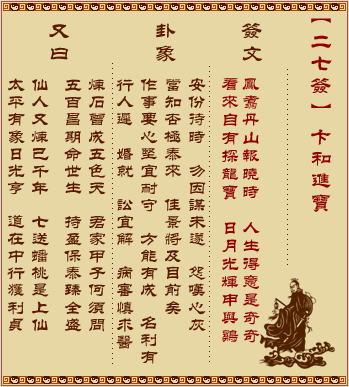 【二七簽】 卞和進寶
簽文
鳳翥丹山報曉時 人生得意是奇奇
看來自有探龍寶 日月光輝申與鷄
卦象
安份待時 勿因謀未遂 怨嘆心灰
當知否極泰來 佳景將及目前矣
作事要心堅宜耐守 方能有成 名利有
行人遲 婚就 訟宜解 病審慎求醫
又曰
煉石曾成五色天 君家甲子何須問
五百昌期命世生 持盈保泰臻全盛
仙人又煉已千年 七送蟠桃是上仙
太平有象日光亨 道在中行獲利貞